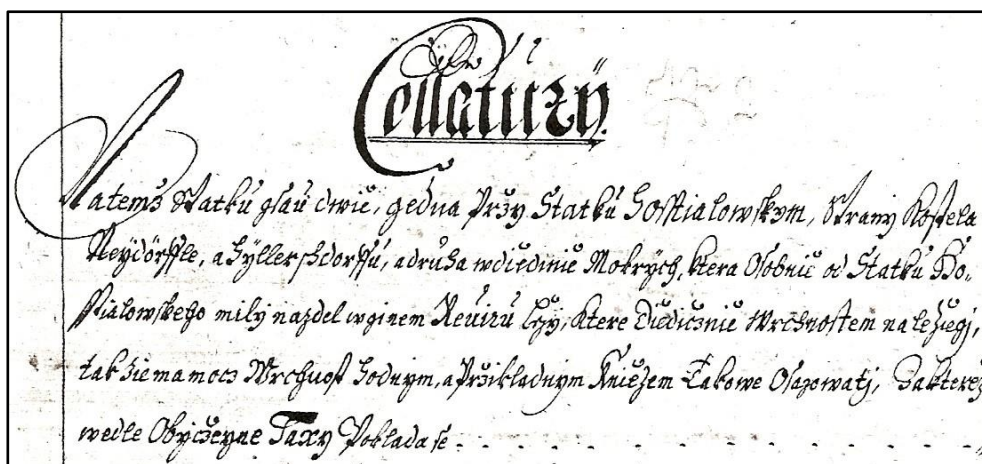 Collaturzÿ.
Natemž Statku gsau dwie, gedna Przy Statku Hostialowskym, Strany Kostela
Neÿdörffle, a Hÿllerschdorffu, a druha wdiedinie Mokrých, ktera Osobnie od Statku Ho-
stialowskeho mily nazdel wginem Reviru Lžy, ktere Diedicznie Wrchnostem naležiegi,
tak žie ma mocz Wrchnost hodnym, a Przikladnym Kniežem Takowe Osazowati, Zakterež
wedle Obyczeyne Taxy Poklada se . - . - . - . - . - . -